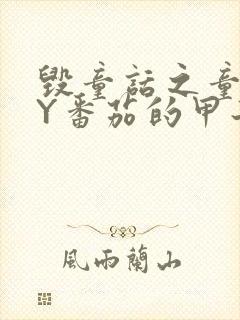 毁童话之童
Y番茄的甲
風雨蘭山